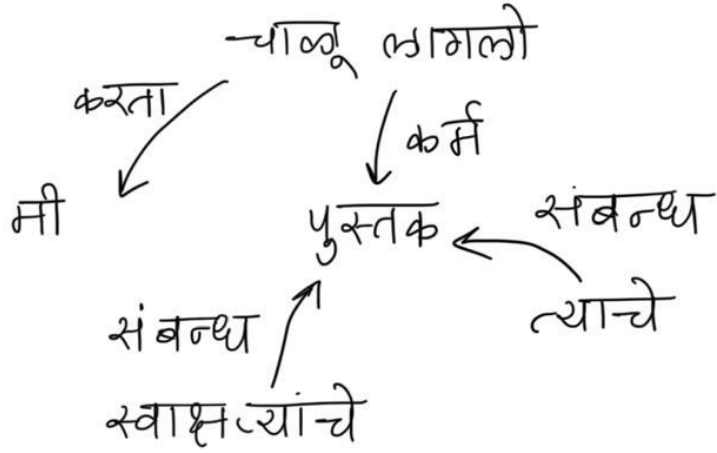 चाळू लागलो
करता
कर्म
मी
पुस्तक
संबन्ध
त्याचे
संबन्ध
स्वाक्षऱ्यांचे